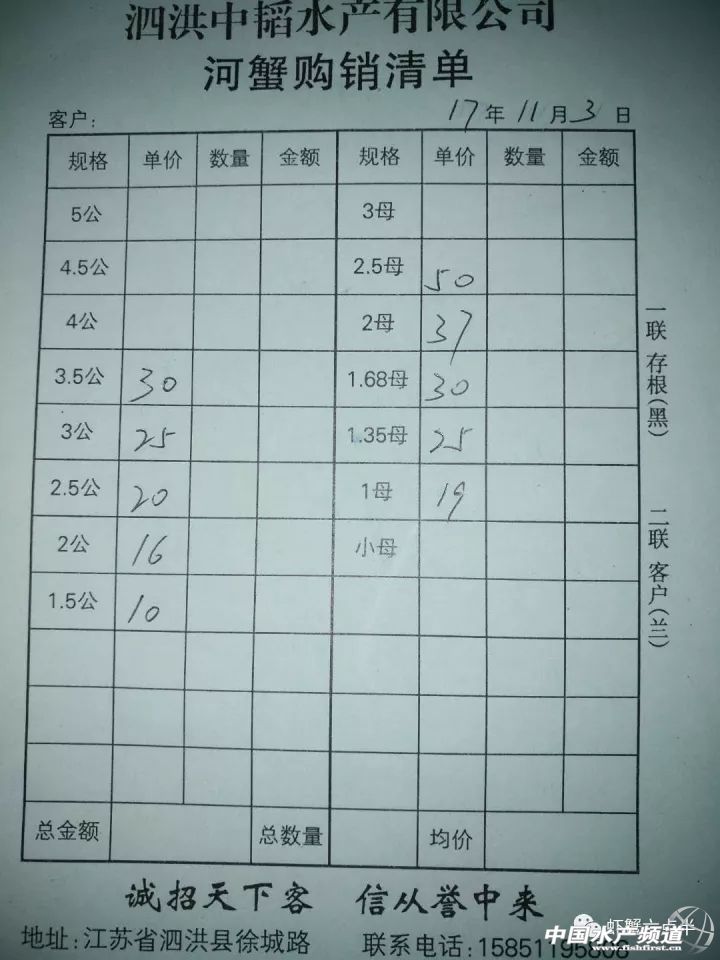 泗洪中韬水产有限公司
河蟹购销清单
客户: 17年11月3日
规格 单价 数量 金额 规格 单价 数量 金额
5公 3母
4.5公 2.5母 50
4公 2母 37
3.5公 30 1.68母 30
3公 25 1.35母 25
2.5公 20 1母 19
2公 16 小母
1.5公 10
总金额 总数量 均价
一联 存根(黑) 二联 客户(兰)
诚招天下客 信从誉中来
地址:江苏省泗洪县徐城路 联系电话:15851195
虾蟹六点半
中国水产频道
www.fishfirst.cn